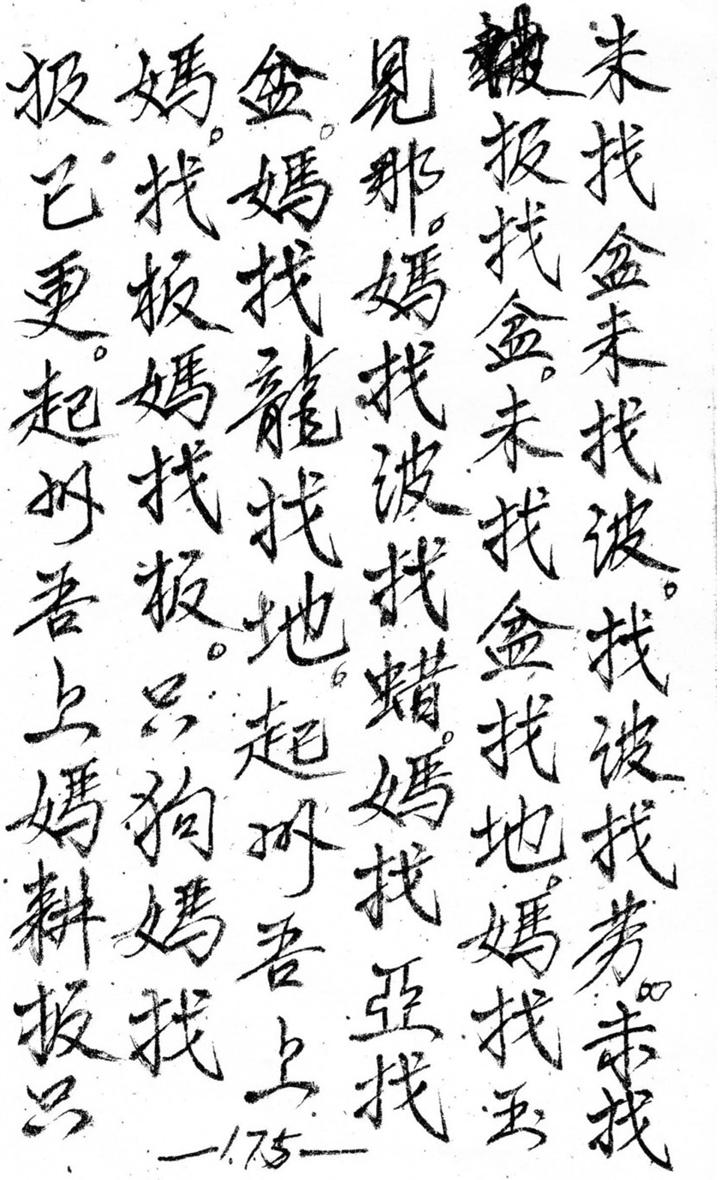 未找盆未找波。找波找劳。未找
扳找盆。未找盆找地。媽找玉
見那。媽找波找蜡。媽找亞找
盆。媽找龍找地。起州吾上
媽。找板媽找板。只狗媽找
扳已更。起州吾上媽耕扳只
—175—